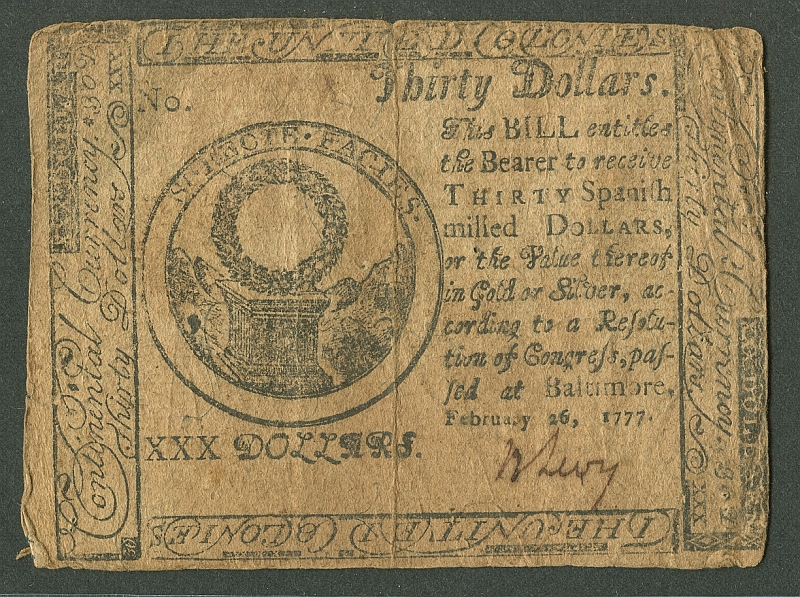 THE UNITED COLONIES
Thirty Dollars.
No.
SI RECTE FACIES.
This BILL entitles
the Bearer to receive
THIRTY Spanish
milled DOLLARS,
or the Value thereof
in Gold or Silver, ac-
cording to a Resolu-
tion of Congress, pas-
sed at Baltimore,
February 26, 1777.
XXX DOLLARS.
B Levy
THE UNITED COLONIES
Continental Currency.
Thirty Dollars
XXX
Continental Currency.
Thirty Dollars
XXX